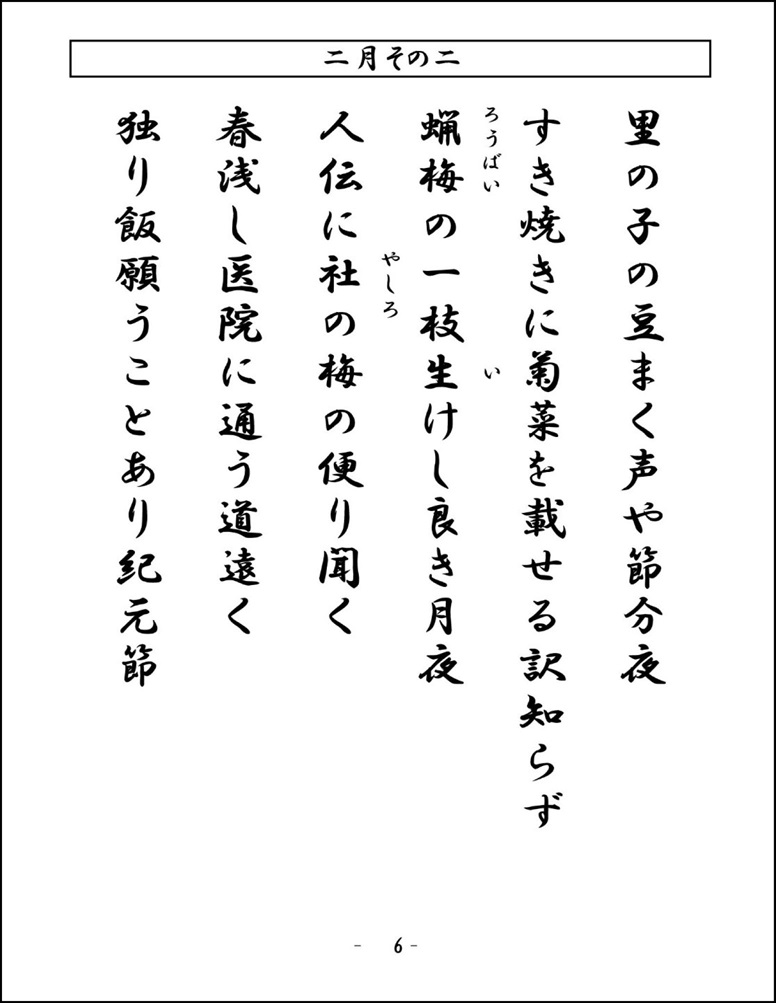 二月その二
里の子の豆まく声や節分夜
すき焼きに菊菜を載せる訳知らず
ろうばい
い
蝋梅の一枝生けし良き月夜
やしろ
人伝に社の梅の便り聞く
春浅し医院に通う道遠く
独り飯願うことあり紀元節
- 6 -